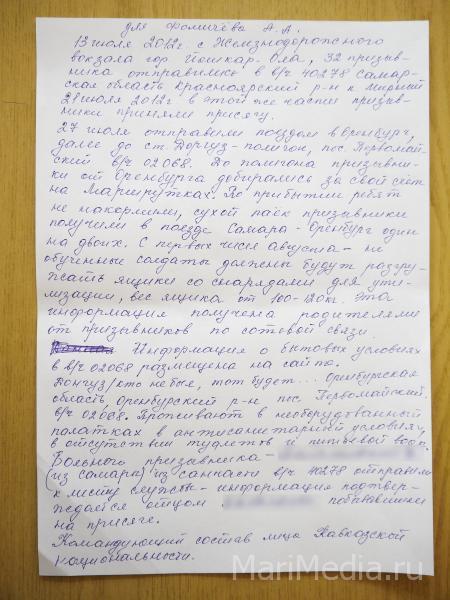 для Фомичёва А.А.
13 июля 2012г. с Железнодорожного
вокзала гор Йошкар-Ола, 32 призыв-
ника отправились в в/ч 40278 Самар-
ская область Красноярский р-н п Мирный
21 июля 2012г в этой же части призыв-
ники приняли присягу.
27 июля отправили поездом в Оренбург,
далее до ст Донгуз-полигон, пос. Первомай-
ский в/ч 02068. До полигона призывни-
ки от Оренбурга добирались за свой счёт
на маршрутках. По прибытии ребят
не накормили, сухой паёк призывники
получили в поезде Самара-Оренбург один
на двоих. С первых чисел августа - не
обученные солдаты должны будут разгру-
жать ящики со снарядами для ути-
лизации, вес ящика от 100-120кг. Эта
информация получена родителями
от призывников по сотовой связи.
Информация о бытовых условиях
в в/ч 02068 размещена на сайте.
Донгуз/кто не был, тот будет... Оренбургская
область, Оренбургский р-н пос Первомайский,
в/ч 02068. Проживают в необорудованных
палатках в антисанитарных условиях,
в отсутствии туалетов и питьевой воды.
Больного призывника -
(из самары) из санчасти в/ч 40278 отправили
к месту службы - информация подтвер-
ждается отцом побывавшим
на присяге.
Командующий состав лица Кавказской
национальности.
MariMedia.ru